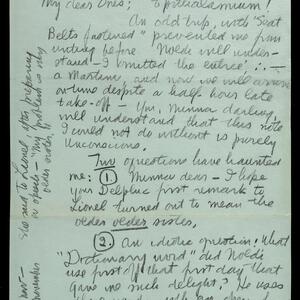 My dear Ones; Epithalamium!
An odd trip, with "Seat
Belts fastened" prevented me from
before Noldi will under-
stand - I omitted the entrée ∴ -
a Martini, and now we will arrive
on time despite a half-hour late
take-off - You, Minna darling,
will understand that this note
I could not do without is purely
Unconscious.
Two questions have haunted
me: ① Minna dear - I hope
your Delphic first remark to
Lionel turned out to mean the
older older sister.
② An idiotic question! What
"Dictionary word" did Noldi
use first off that first day that
gave me such delight? He uses
She said to Lionel after preparing
a speech - "My problem is my
older sister"!